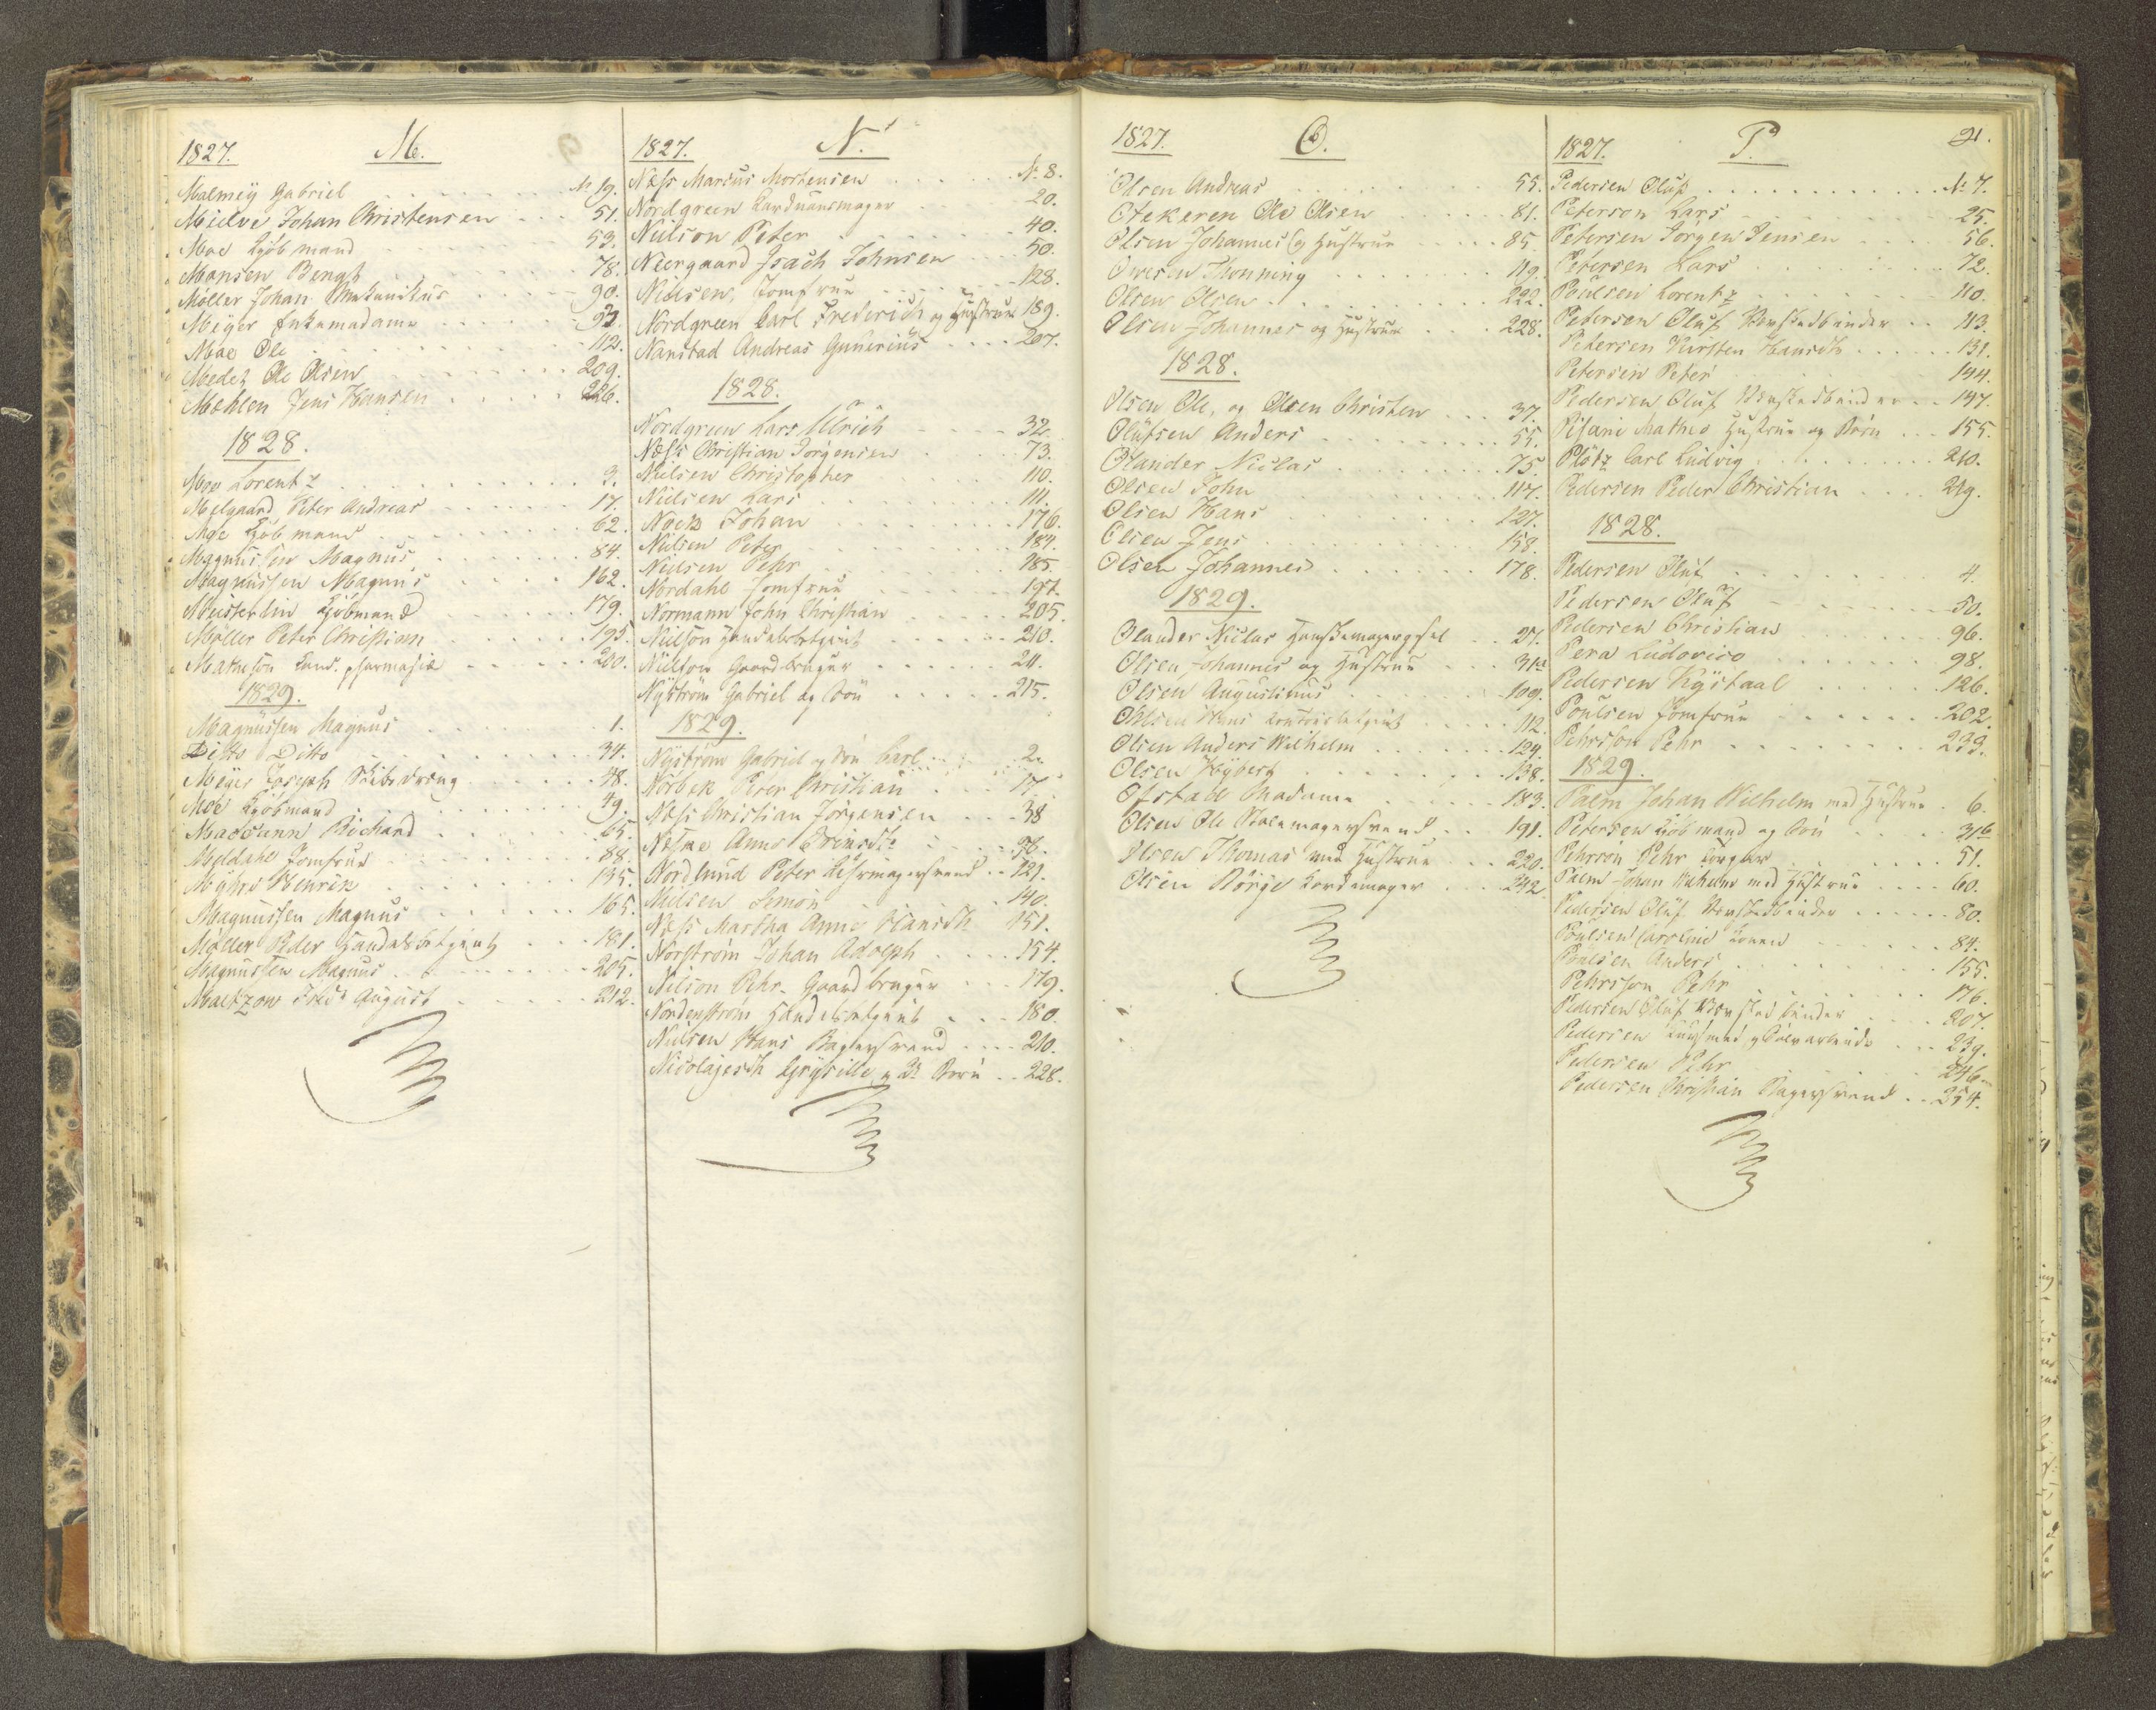 1827. M.
Malmey Gabriel No 19.
Mielve Johan Christensen 51.
Moe Kjöbmand 53.
Monsen Bengt 78.
Møller Johan Mekanikus 90.
Meyer Enkemadame 92.
Moe Ole 112.
Medet Ole Olsen 209.
Mæhlen Jens Hansen 226.
1828.
Moe Lorentz 3.
Melgaard Peter Andreas 17.
Moe Kjöbmand 62.
Magnussen Magnus 84.
Magnussen Magnus 162.
Meisterlin Kjöbmand 179.
Møller Peter Christian 195.
Matheson Cand. pharmasiæ 200.
1829.
Magnussen Magnus 1.
Ditto Ditto 34.
Meyer Joseph Skibsdreng 48.
Moe Kjöbmand 49.
Maccann Richard 65.
Meldahl Jomfrue 88.
Myhre Henrik 135.
Magnussen Magnus 165.
Møller Peder Handelsbetjent 181.
Magnussen Magnus 205.
Maltzow Fredr August 212.
1827. N.
Næss Marcus Mortensen No 8.
Nordgreen Carduansmager 20.
Nielson Peter 40.
Neergaard Isach Johnsen 50.
Nielsen, Jomfrue 128.
Nordgreen Carl Frederich og Hustrue 189.
Nanstad Andreas Gunerius 207.
1828.
Nordgreen Lars Ulrich 32.
Næss Christian Jørgensen 73.
Nielsen Christopher 110.
Nielsen Lars 111.
Noer Johan 176.
Nielsen Peter 184.
Nielsen Pehr 185.
Nordahl Jomfrue 197.
Normann John Christian 205.
Nielson Handelsbetjent 210.
Nielson Gaardbruger 211.
Nyström Gabriel og Søn 215.
1829.
Nyström Gabriel og Søn Carl 2.
Norbek Peter Christian 17
Næss Christian Jørgensen 38
Nesne Anne Erinsdtr 96.
Nordlund Peter Uhrmagersvend 121.
Nielsen Simon 140.
Næss Martha Anne Hansdtr 151.
Norström Johan Adolph 154.
Nilson Pehr Gaardbruger 179.
Nordenström Handelsbetjent 180.
Nielsen Hans Bagersvend 210.
Nicolajesdtr Gryselle og 2de Børn 228.
1827. O.
Olsen Andreas 55.
Otekeren Ole Olsen 81.
Olsen Johannes og Hustrue 85.
Owesen Thonning 119.
Olsen Olsen 222.
Olsen Johannes og Hustrue 228.
1828.
Olsen Ole, og Olsen Christen 37.
Olufsen Anders 55.
Olander Niclas 75.
Olsen John 117.
Olsen Hans 127.
Olsen Jens 158.
Olsen Johannes 178.
1829.
Olander Niclas Hanskemagergsel 27.
Olsen, Johannes og Hustrue 31a
Olsen Augustinus 109.
Ohlsen Hans Contoirbetjent 112.
Olsen Anders Wilhelm 124.
Olsen Nyberg 138.
Ofstad Madame 183.
Olsen Ole Stolemagersvend 191.
Olsen Thomas med Hustrue 220.
Olsen Börge Kordemager 242
1827. P. 21.
Pedersen Oluf No 7.
Peterson Lars 25.
Petersen Jörgen Jensen 56.
Petersen Lars 72.
Poulsen Lorentz 110.
Petersen Oluf Børstedbinder 113.
Petersen Kirsten Hansdtr 131.
Petersen Peter 144.
Pedersen Oluf Børstedbinder 147.
Pisani Matheo Hustrue og Børn 155.
Plötz Carl Ludvig 210.
Pedersen Peder Christian 219.
1828.
Pedersen Oluf 4.
Pedersen Oluf 50.
Pedersen Christian 96.
Pera Ludovico 98.
Pedersen Kystaal 126.
Poulsen Jomfrue 202.
Pehrson Pehr 233.
1829.
Palm Johan Wilhelm med Hustrue 6.
Petersen Kjöbmand og Søn 31b
Pehrson Pehr 51.
Palm Johan Wilhelm med Hustrue 60.
Pedersen Oluf Børstedbinder 80.
Poulsen Caroline Konen 84.
Poulsen Anders 155.
Pehrson Pehr 176.
Pedersen Oluf Børstedbinder 207.
Pedersen 239.
Pedersen Pehr 246.
Pedersen Christian Bagersvend 254.